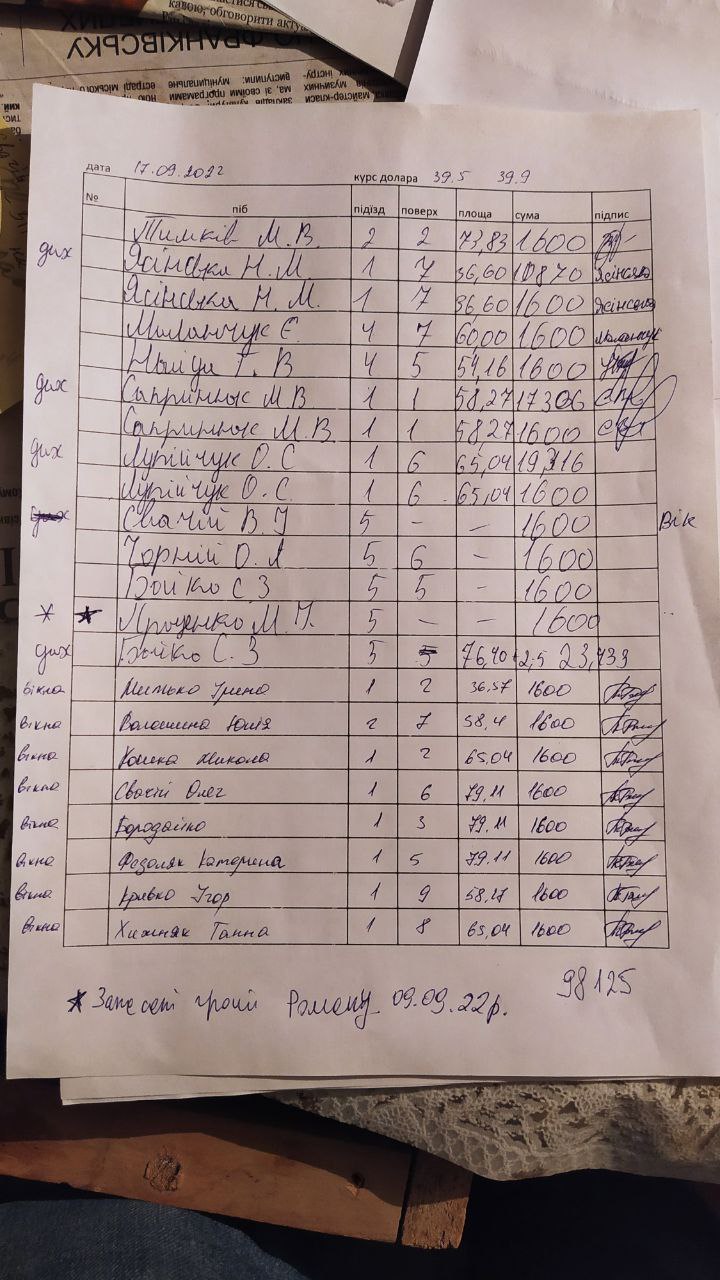 кавою, обговорити акту
ФРАНКІВСЬКУ
дата 17.09.2022 курс долара 39.5 39.9
№ піб підїзд поверх площа сума підпис
Тимків М.В. 2 2 73,83 1600
дих Ясінська Н.М. 1 7 36,60 10870 Ясінська
Ясінська Н.М. 1 7 36,60 1600 Ясінська
Миланчук Є. 4 7 60,00 1600
4 5 54,16 1600
дих Сапринюк М.В 1 1 58,27 17306
Сапринюк М.В. 1 1 58,27 1600
дих Лурійчук О.С 1 6 65,04 19,316
Лурійчук О.С. 1 6 65,04 1600
Свачій В.І 5 – – 1600 Вік
Чорній О.Я 5 6 – 1600
Бойко С З 5 5 – 1600
* ★ Проценко М.І. 5 – – 1600
дих Бойко С. З 5 5 76,40+2,5 23,433
вікна Мицько Ірина 1 2 36.57 1600
вікна Волошина Юлія 2 7 58,4 1600
вікна Микола 1 2 65,04 1600
вікна Свачій Олег 1 6 79.11 1600
вікна Бородайко 1 3 79.11 1600
вікна Федоляк Катерина 1 5 79.11 1600
вікна Кривко Ігор 1 9 58,27 1600
вікна Хижняк Ганна 1 8 65,04 1600
98125
★ Занесені гроші Роману 09.09.22р.